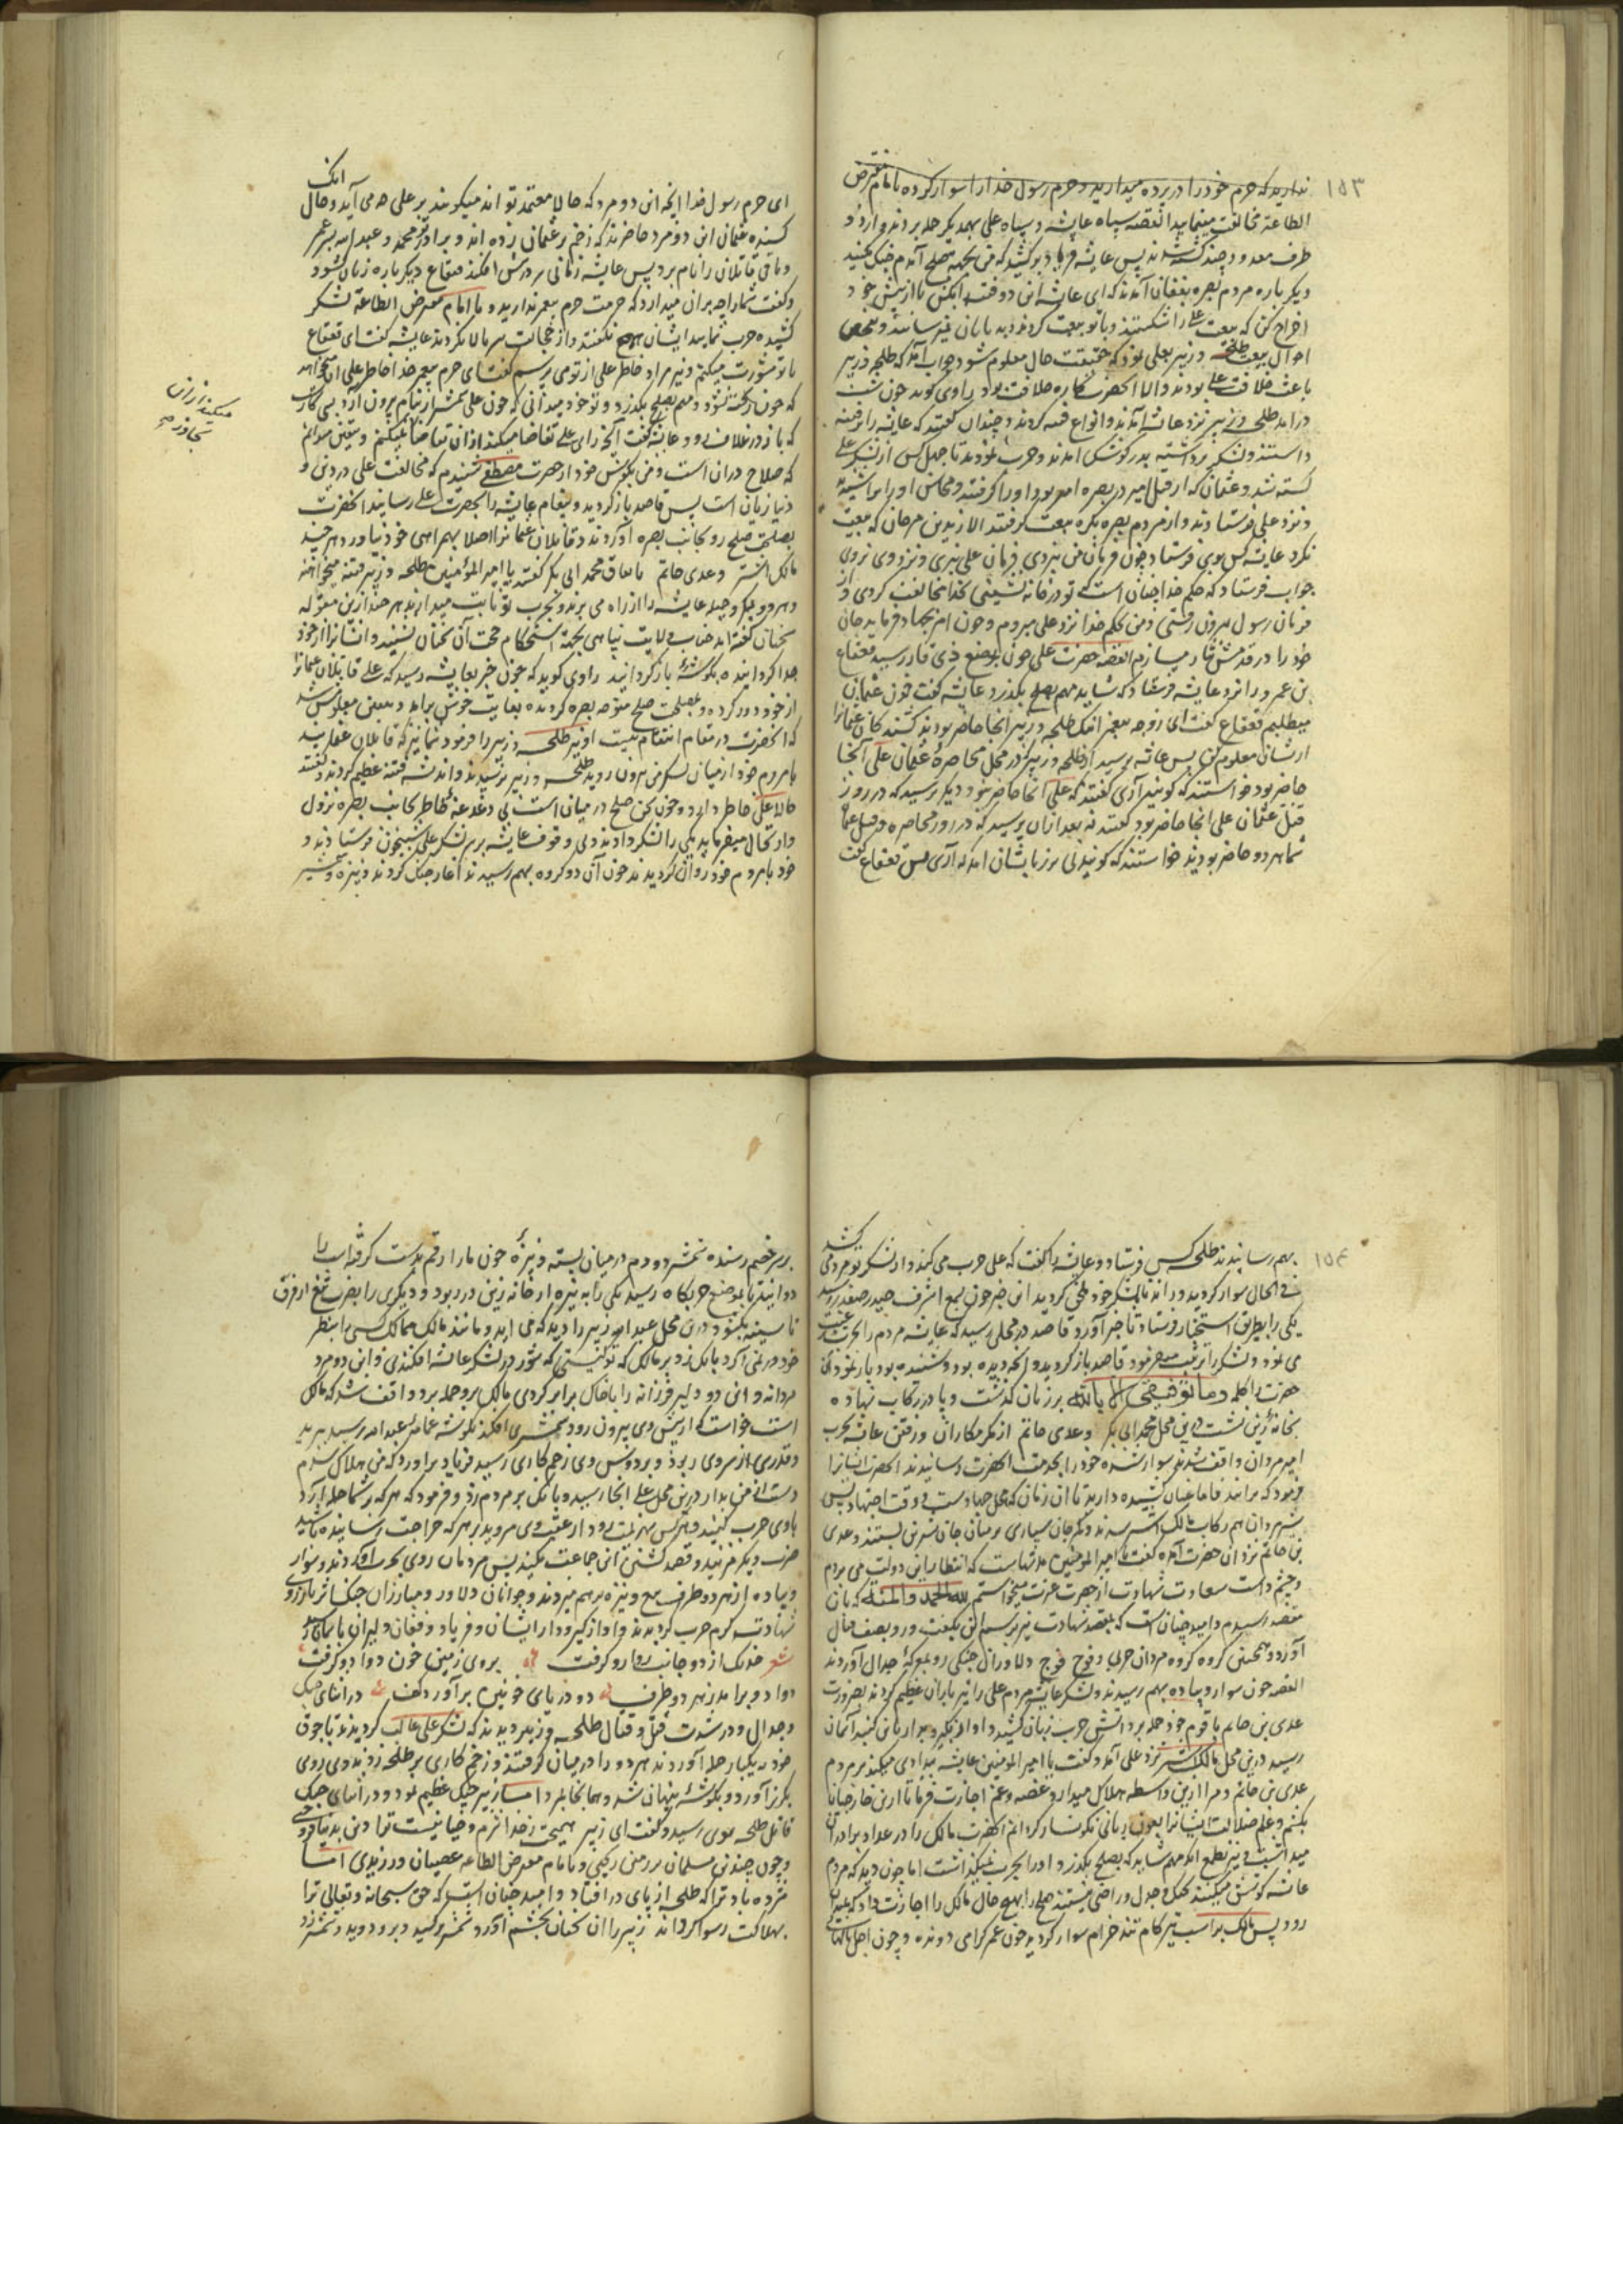 ۱۵۳
ندارید که حرم خود را در پرده میدارید و حرم رسول خدا را سوار کرده با امام مفترض
الطاعة مخالفت مینمایید القصه سپاه عایشه و سپاه علی بهمدیگر حمله بردند و از دو
طرف معدودی چند کشته شدند پس عایشه فریاد برکشید که من بجهة صلح آمدم جنگ مکنید
دیگر باره مردم بصره بفغان آمدند که ای عایشه این دو فتنه انگیز را از پیش خود
اخراج کن که بیعت علی را شکستند و با تو بیعت کردند
احوال بیعت طلحه و زبیر بعلی نمود که حقیقت حال معلوم شود جواب آمد که طلحه و زبیر
باعث خلافت علی بودند والا آنحضرت کاره خلافت بود راوی گوید چون شب
درآمد طلحه و زبیر نزد عایشه آمدند و انواع فتنه کردند و چندان گفتند که عایشه را بر فتنه
داشتند و لشکر برداشته بدر کوشک آمدند و حرب نمودند تا چهل کس از لشکر علی
کشته شد و عثمان که از قبل امیر در بصره امیر بود او را گرفتند و محاسن او را تراشیده
و نزد علی فرستادند و از مردم بصره بکره بیعت گرفتند الا زید بن صرحان که بیعت
نکرد عایشه کس بوی فرستاد چون فرمان من نبردی فرمان علی نبری و نزد وی نروی
جواب فرستاد که حکم خدا چنان است که تو در خانه نشینی بخدا مخالفت کردی و از
فرمان رسول بیرون رفتی و من بحکم خدا نزد علی میروم و چون امر بجهاد فرماید جان
خود را در قدمش نثار میسازم القصه حضرت علی چون بموضع ذی قار رسید قعقاع
بن عمرو را نزد عایشه فرستاد که شاید مهم بصلح بگذرد عایشه گفت خون عثمان
میطلبم قعقاع گفت ای زوجه پیغمبر اینک طلحه و زبیر اینجا حاضر بودند
ازیشان معلوم کن پس عایشه پرسید از طلحه و زبیر که در محل محاصره عثمان علی آنجا
حاضر بود خواستند که گویند آری گفتند که علی آنجا حاضر نبود دیگر پرسید که در روز
قتل عثمان علی آنجا حاضر بود گفتند نه بعد از آن پرسید که در روز محاصره و قتل عثمان
شما هر دو حاضر بودید خواستند که گویند نی بر زبانشان آمد که آری پس قعقاع گفت
اینک
ای حرم رسول خدا اینجا این دو مرد که حالا معتمد تو اند میگویند بر علی چه می آید و حال
کشنده عثمان این دو مرد حاضرند که زخم بر عثمان زده اند و برادر تو محمد و عبدالله پسر عمر
و باقی قاتلان را نام برد پس عایشه زمانی سر در پیش افکند قعقاع دیگر باره زبان گشود
و گفت شما را چه بر آن میدارد که حرمت حرم پیغمبر ندارید و با امام مفترض الطاعة لشکر
کشیده حرب نمایید ایشان هیچ نگفتند و از خجالت سر بالا نکردند عایشه گفت ای قعقاع
با تو مشورت میکنم و نیز مراد خاطر علی از تو می پرسم گفت ای حرم پیغمبر خدا خاطر علی آن میخواهد
که خون ریخته نشود و مهم بصلح بگذرد و تو خود میدانی که چون علی شمشیر از نیام بیرون آرد بی کار
که باز در غلاف رود عایشه گفت آنچه رای علی تقاضا میکند از آن تقاضا نمیکنم و یقین میدانم
که صلاح در آن است و من بگوش خود از حضرت مصطفی شنیدم که مخالفت علی در دین و
دنیا زیان است پس قاصد باز گردید و پیغام عایشه را بحضرت علی رسانید آنحضرت
بمصلحت صلح رو بجانب بصره آوردند و قاتلان عثمان را اصلا بهمراهی خود نیاورد هر چند
مالک اشتر و عدی حاتم باتفاق محمد ابی بکر گفتند یا امیر المؤمنین طلحه و زبیر فتنه میخواهند
و هر دو بمکر و حیله عایشه را از راه می برند و بحرب تو ثابت میدارند هر چند ازین مقوله
سخنان گفته اند جناب ولایت پناهی بجهة استحکام حجت آن سخنان نشنید و ایشان را از خود
جدا گردانیده بگوشه باز گردانید راوی گوید که چون خبر بعایشه رسید که علی قاتلان عثمان را
از خود دور کرده و بمصلحت صلح متوجه بصره گردیده بغایت خوش برآمد و یقین معلومش شد
که آنحضرت در مقام انتقام نیست او نیز طلحه و زبیر را فرمود شما نیز که قاتلان عثمانید
با مردم خود از میان لشکر من بیرون روید طلحه و زبیر ترسیدند و اندیشه فتنه عظیم کردند و گفتند
حالا علی خاطر دارد و چون سخن صلح در میان است بی دغدغه خاطر بجانب بصره نزول
و ارتحال میفرماید یکی را لشکر دادند و بی وقوف عایشه بر سر لشکر علی بشبیخون فرستادند و
خود با مردم خود روان گردیدند چون آن دو گروه بهم رسیدند آغاز جنگ کردند و نیزه و شمشیر
میکند از آن
تجاوز
۱۵۴
بهم رسانیدند طلحه کس فرستاد و عایشه را گفت که علی حرب می کند و از لشکر تو مردم می کشد
فی الحال سوار گردید و راند تا بلشکر خود ملحق گردید این خبر چون بسمع اشرف حیدر صفدر رسید
یکی را بطریق استخبار فرستاد تا خبر آورد قاصد در محلی رسید که عایشه مردم را بحرب رغبت
می نمود و لشکر را ترتیب میفرمود قاصد باز گردید و آنچه دیده بود و شنیده بود باز نمود آن
حضرت کلمه وما توفیقی الا بالله بر زبان گذشت و پا در رکاب نهاده
بخانه زین نشست درین محل محمد ابی بکر و عدی حاتم از مکر مکاران و رفتن عایشه بحرب
امیر مردان واقف شدند سوار شده خود را بخدمت آنحضرت رسانیدند آنحضرت ایشان را
بن حاتم نزد آن حضرت آمده گفت یا امیر المؤمنین مدتهاست که انتظار این دولت می بردم
و چشم داشت سعادت شهادت از حضرت عزت میخواستم لله الحمد والمنة که بآن
مقصد رسیدم و امید چنان است که بمقصد شهادت نیز برسم این بگفت و رو بصف قتال
آورد و همچنین گروه گروه مردان حربی و فوج فوج دلاوران جنگی رو بمعرکه جدال آوردند
القصه چون سوار و پیاده بهم رسیدند و لشکر عایشه مردم علی را تیر باران عظیم کردند بضرورت
عدی بن حاتم با قوم خود حمله برد آتش حرب زبانه کشید و آواز بگیر و بدار بر گنبد آسمان
رسید درین محل مالک اشتر نزد علی آمد و گفت یا امیر المؤمنین عایشه بیدادی میکند بر مردم
عدی بن حاتم و مرا ازین واسطه هلاک میدارد غصه و غم اجازت فرما تا ازین خارجیان
عایشه کوشش میکنند بجنگ و جدل و راضی نیستند بصلح بهیچ حال مالک را اجازت داد که بمیدان
رود پس مالک بر اسب تیز گام تند خرام سوار گردید چون عمر گرامی دونده و چون اجل ناگهانی
بر سر خصم رسنده شمشیر دو دم در میان بسته و نیزه چون مار ارقم بدست گرفته اسب را
دوانید تا بموضع حربگاه رسید یکی را به نیزه از خانه زین در ربود و دیگری را بضرب تیغ از فرق
تا سینه بگشود درین محل عبدالله زبیر را دید که می آید و مانند مالک ممالک کسی را بنظر
خود در نمی آورد بانگ زد بر مالک که تو کیستی که شور در لشکر عایشه افکندی و این دو مرد
مردانه و این دو دلیر فرزانه را با خاک برابر کردی مالک برو حمله برد واقف شد که مالک
است خواست که از پیش وی بیرون رود شمشیری افکند بگوشه عمامه عبدالله رسید ببرید
و قدری از سر وی ببرد و بر دوش وی زخم کاری رسید فریاد برآورد که من هلاک شدم
دست از من بدار درین محل علی آنجا رسید و بانگ بر مردم زد و فرمود که هر که بر شما حمله آرد
با وی حرب کنید و هر کس بهزیمت رود از عقب وی مروید و بر هر که جراحت رسانیده باشید
ضرب دیگر مزنید و قصد کشتن این جماعت مکنید پس مردمان روی بحرب آوردند و سوار
و پیاده از هر دو طرف تیغ و نیزه بر هم میزدند و جوانان دلاور و مبارزان جنگی بآرزوی
شهادت گرم حرب گردیدند و آواز گیر و دار ایشان و فریاد و فغان دلیران بآسمان رسید
شعر خدنک از دو جانب روارو گرفت بروی زمین خون دوادو گرفت
دوادو برآمد ز هر دو طرف دو دریای خونین برآورد کف در اثنای جنگ
و جدال و در شدت قتل و قتال طلحه و زبیر دیدند که لشکر علی غالب گردیدند با جوق
خود بیکبار حمله آوردند هر دو را در میان گرفتند و زخم کاری بر طلحه زدند وی روی
بگریز آورد و بگوشه پنهان شد و همانجا بمرد اما زبیر جنگ عظیم نمود و در اثنای جنگ
قاتل طلحه بوی رسید و گفت ای زبیر هیچت از خدا شرم و حیا نیست ترا دین بدنیا فروختی
و خون چندین مسلمان بر زمین ریختی و با امام مفترض الطاعه عصیان ورزیدی اما
مژده باد ترا که طلحه از پای در افتاد و امید چنان است که حق سبحانه و تعالی ترا
بهلاکت رسوا گرداند زبیر را آن سخنان بخشم آورد شمشیر کشید و برو دوید و شمشیر زد